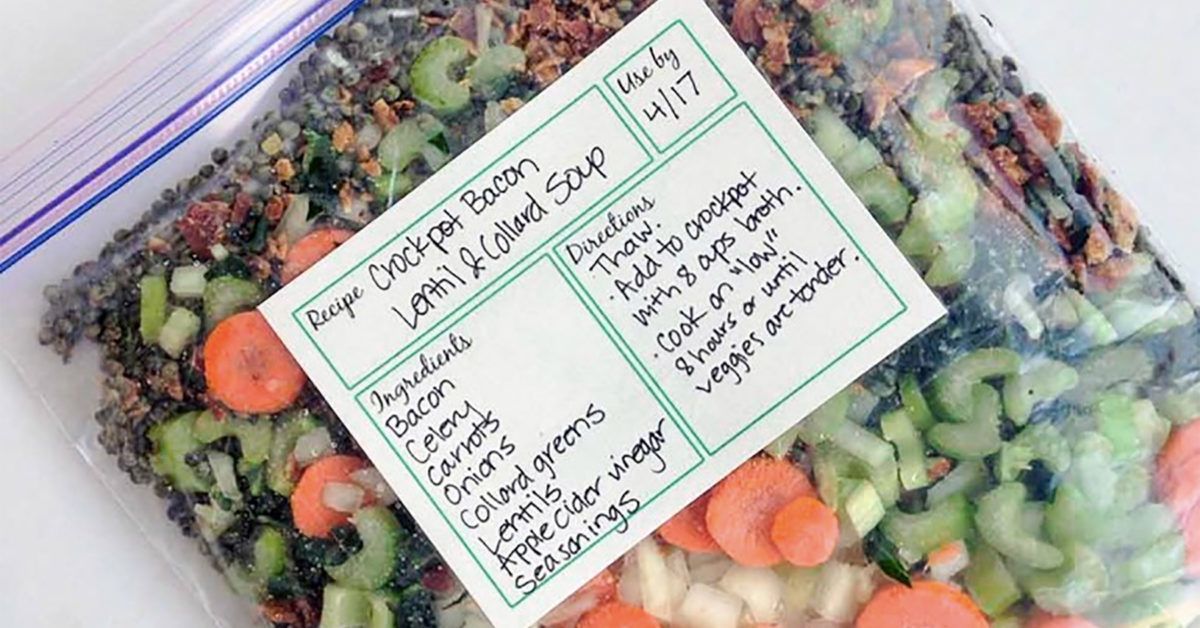 Recipe Crockpot Bacon
Lentil & Collard Soup
Use by
4/17
Ingredients
Bacon
Celery
Carrots
Onions
Collard greens
Lentils
Apple Cider vinegar
Seasonings
Directions
Thaw.
· Add to crockpot
with 8 cups broth.
· Cook on "low"
8 hours or until
veggies are tender.